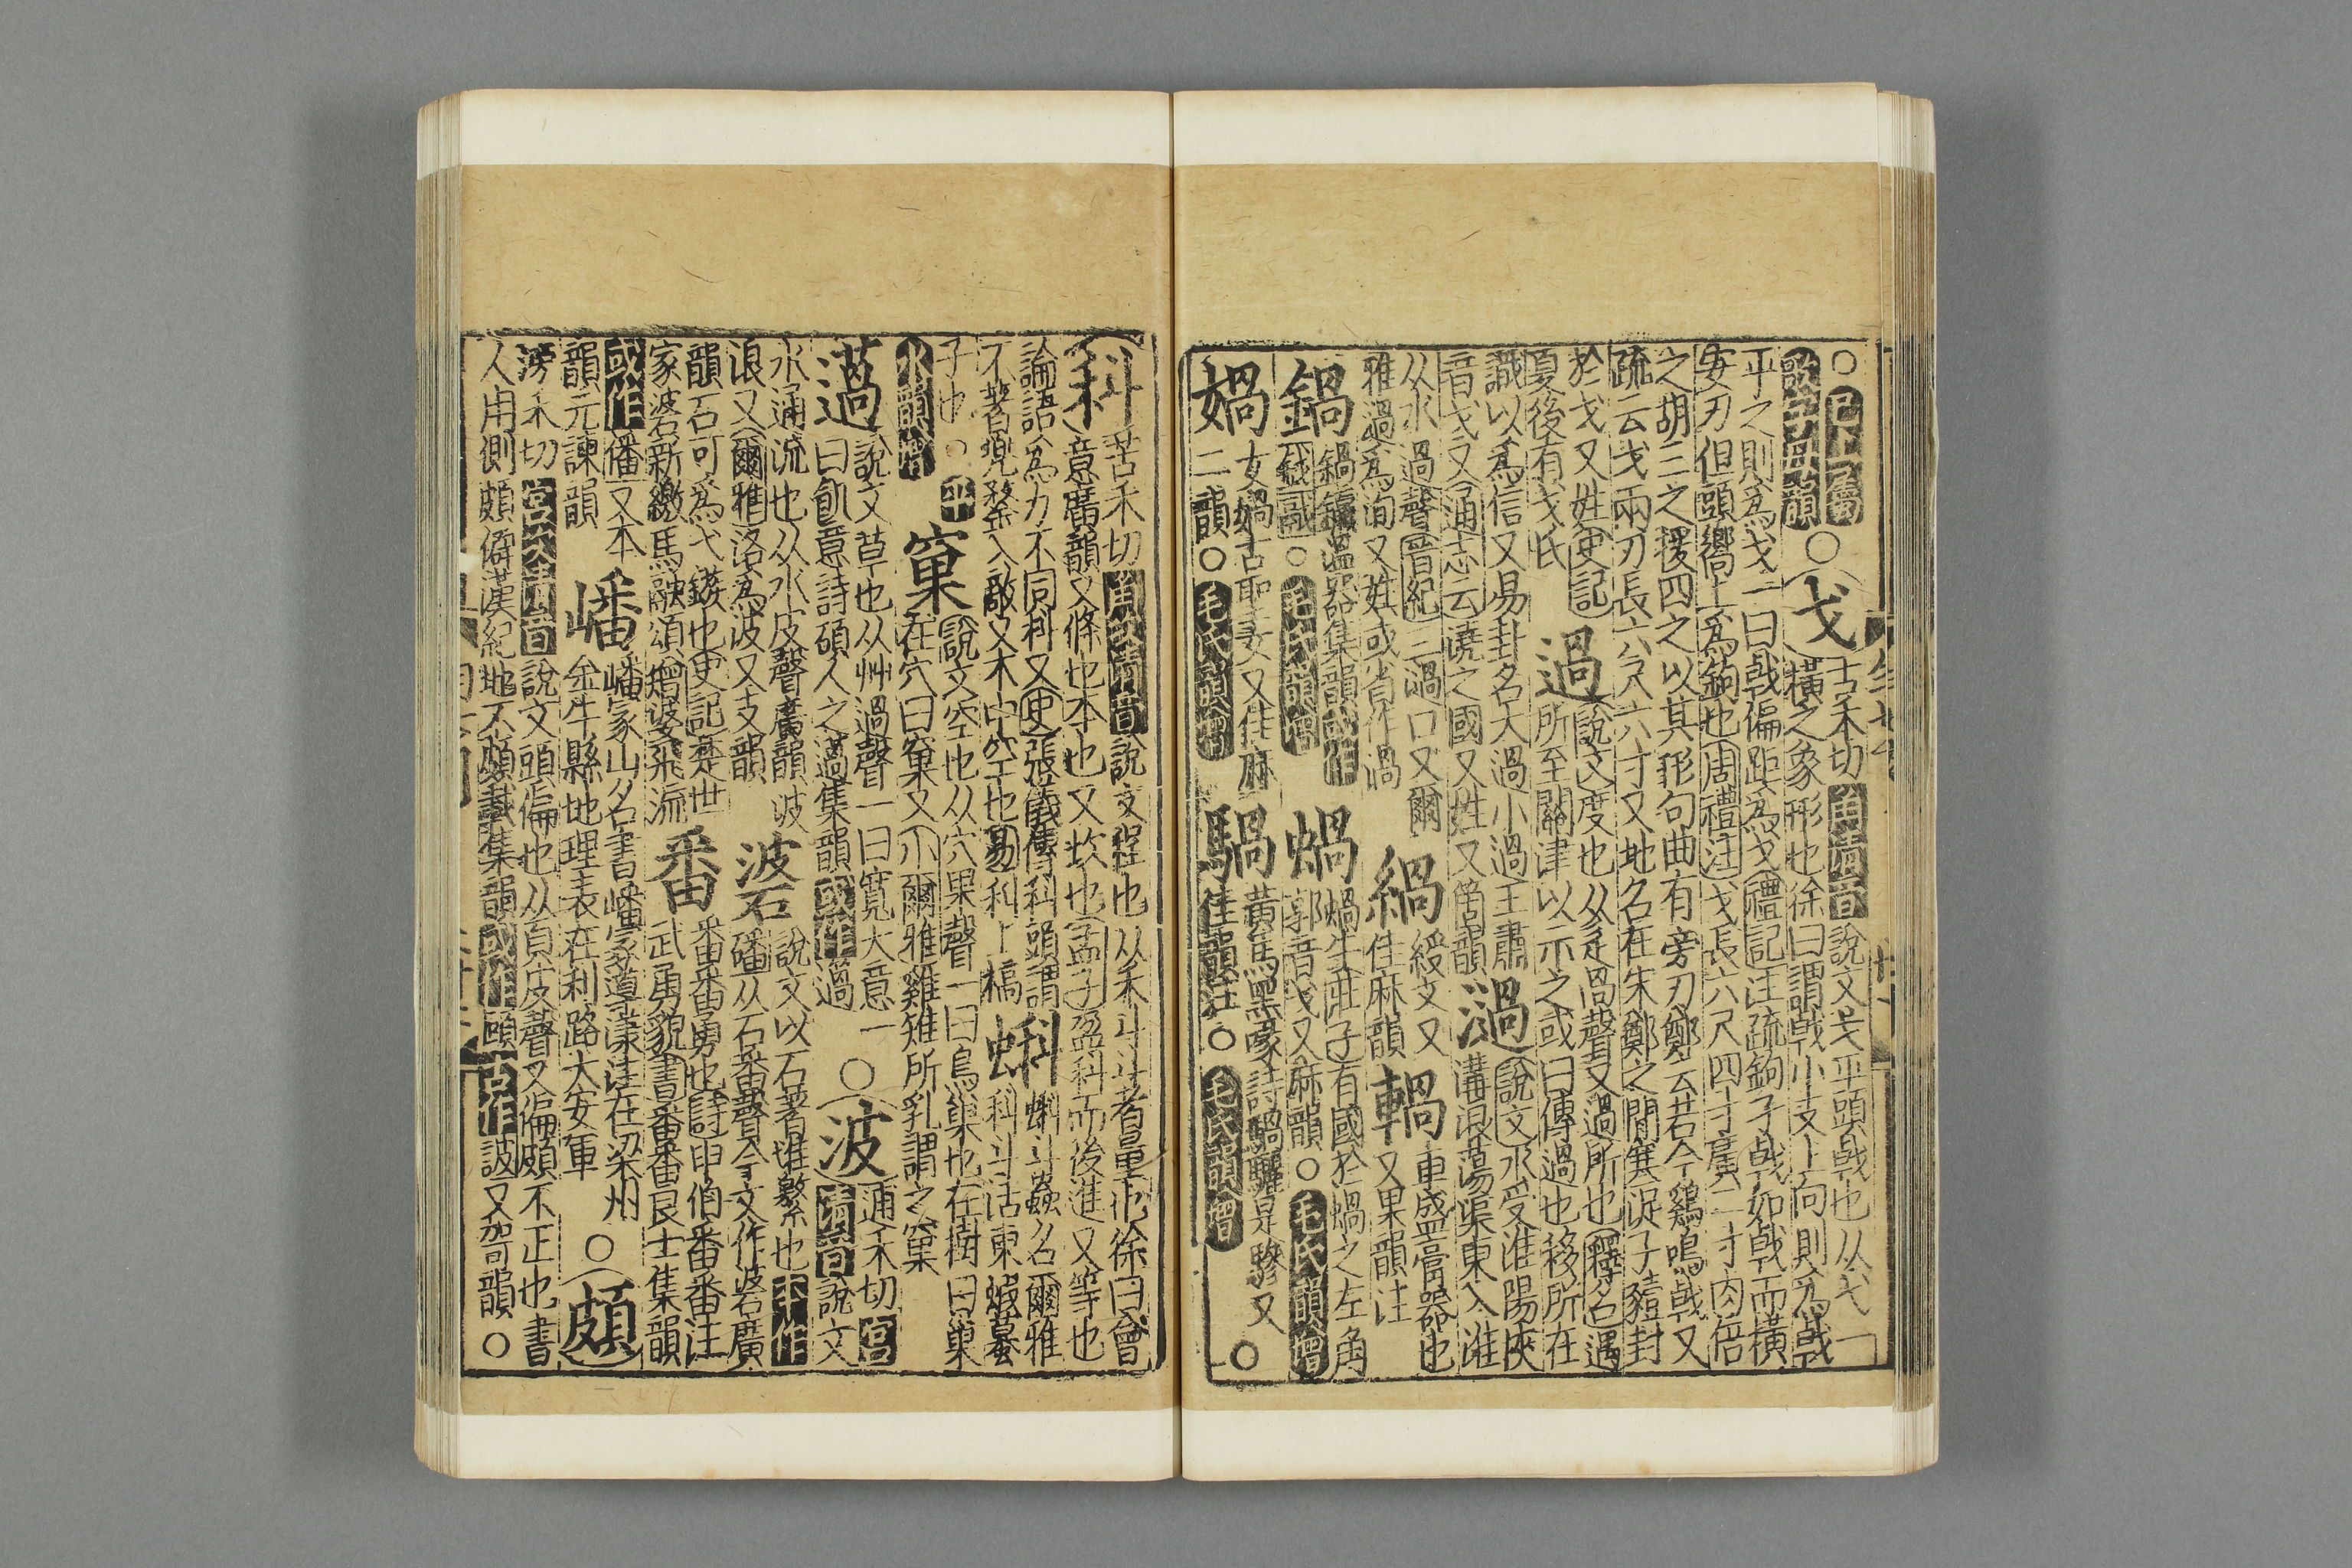 ○已上屬
歌字母韻○戈古禾切角清音說文戈平頭戟也从弋一
橫之象形也徐曰謂戟小支上向則爲戟
平之則爲戈一曰戟偏距爲戈禮記注疏鉤孑戟如戟而橫
安刃但頭嚮上爲鉤也周禮注戈長六尺四寸廣二寸內倍
之胡三之援四之以其形句曲有旁刃鄭云若今鷄鳴戟又
疏云戈兩刃長六尺六寸又地名在宋鄭之閒寒浞子豷封
於戈又姓史記
夏後有戈氏過說文度也从辵咼聲又過所也釋名過
所至關津以示之或曰傳過也移所在
識以爲信又易封名大過小過王肅
音戈又今通志云澆之國又姓又箇韻濄說文水受淮陽扶
溝浪蕩渠東入淮
从水過聲晉紀三濄口又爾
雅濄爲洵又姓或省作渦緺綬文又
佳麻韻輠車盛膏器也
又果韻注
鍋鍋鑹溫器集韻或作
鈛䰙○毛氏韻增蝸蝸牛莊子有國於蝸之左角
郭音戈又麻韻○毛氏韻增
媧女媧古聖妻又佳麻
二韻○毛氏韻增騧黃馬黑喙詩騧驪是驂又
佳韻注○毛氏韻增○
科苦禾切角次清音說文程也从禾斗斗者量也徐曰會
意廣韻又條也本也又坎也孟子盈科而後進又等也
論語爲力不同科又史張儀傳科頭謂
不著兜鍪入敵又木中空也易科上槁蝌蝌斗蟲名爾雅
科斗活東蝦蟇
子也○平
水韻增窠說文空也从穴果聲一曰鳥巢也在樹曰巢
在穴曰窠又爾雅雞雉所乳謂之窠
薖說文草也从艸過聲一曰寬大意一
曰飢意詩碩人之薖集韻或作過○波逋禾切宮
清音說文
水涌流也从水皮聲廣韻波
浪又爾雅洛爲波又支韻碆說文以石著惟繁也本作
磻从石番聲今文作碆廣
韻石可爲弋鏃也史記楚世
家碆新繳馬融頌矰碆飛流番番番勇也詩申伯番番注
武勇貌書番番良士集韻
或作𤄷又本
韻元諫韻嶓嶓冢山名書嶓冢導漾注在梁州
金牛縣地理表在利路大安軍○頗
滂禾切宮次清音說文頭偏也从頁皮聲又偏頗不正也書
人用側頗僻漢紀地不頗載集韻或作頗古作詖又哿韻○